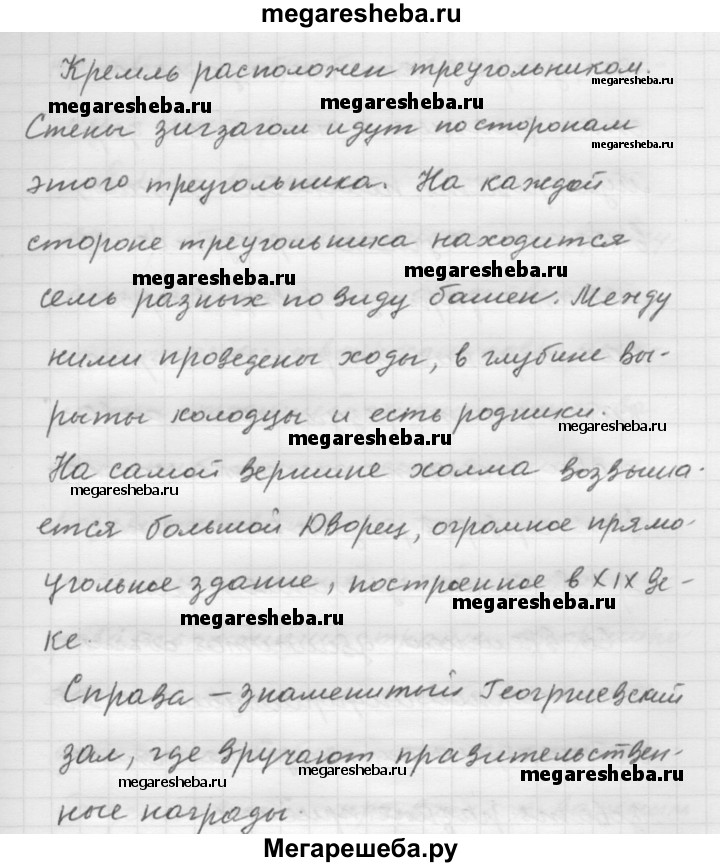 megaresheba.ru
Кремль расположен треугольником.
megaresheba.ru
megaresheba.ru megaresheba.ru
Стены зигзагом идут по сторонам
megaresheba.ru
этого треугольника. На каждой
стороне треугольника находится
megaresheba.ru megaresheba.ru
семь разных по виду башен. Между
ними проведены ходы, в глубине вы-
рыты колодцы и есть родники.
megaresheba.ru megaresheba.ru
На самой вершине холма возвыша-
megaresheba.ru
ется большой Дворец, огромное прямо-
угольное здание, построенное в XIX ве-
megaresheba.ru megaresheba.ru
ке.
Справа – знаменитый Георгиевский
зал, где вручают правительствен-
megaresheba.ru megaresheba.ru megaresheba.ru
ные награды.
Мегарешеба.ру